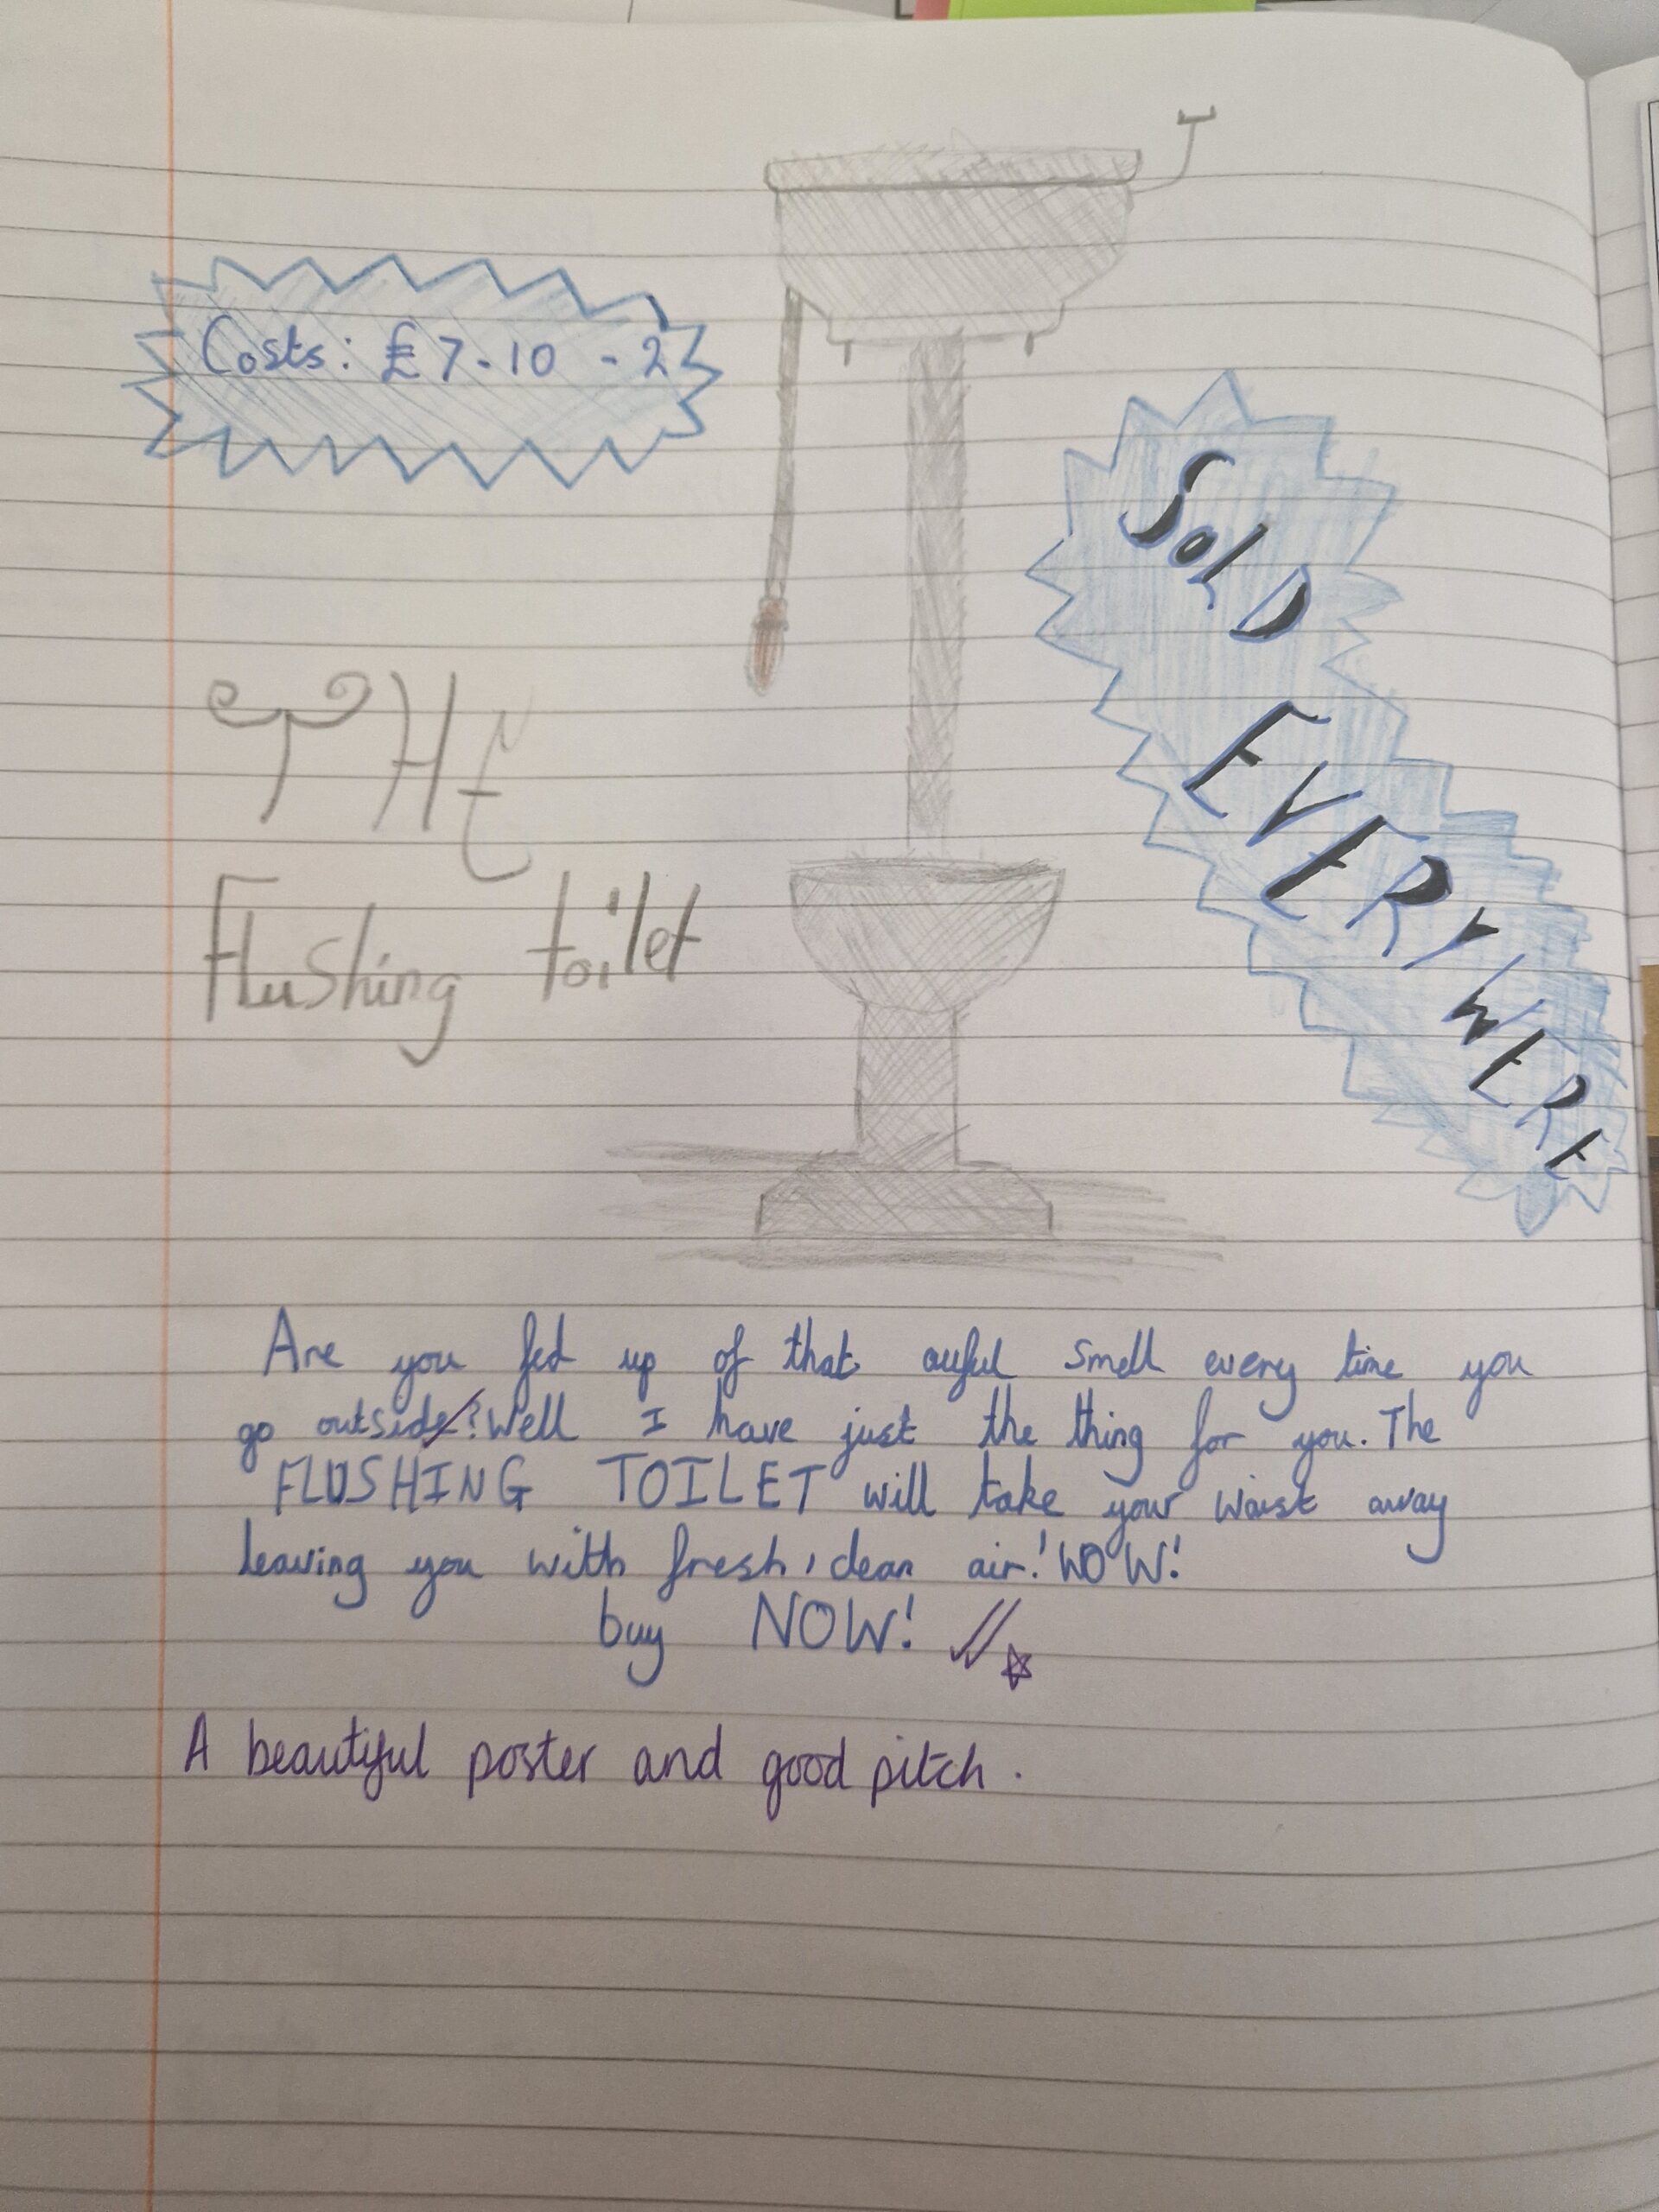 Costs: £7-10-2
SolD
EVERYWERE
THE
Flushing toilet
Are you fed up of that auful smell every time you
go outside? Well I have just the thing for you. The
FLUSHING TOILET will take your waist away
leaving you with fresh, clean air! WOW!
buy NOW!
A beautiful poster and good pitch.